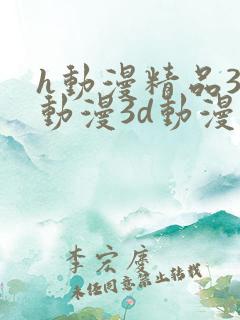 h動漫精品3
動漫3d動漫
李宏慶
未經同意禁止轉載